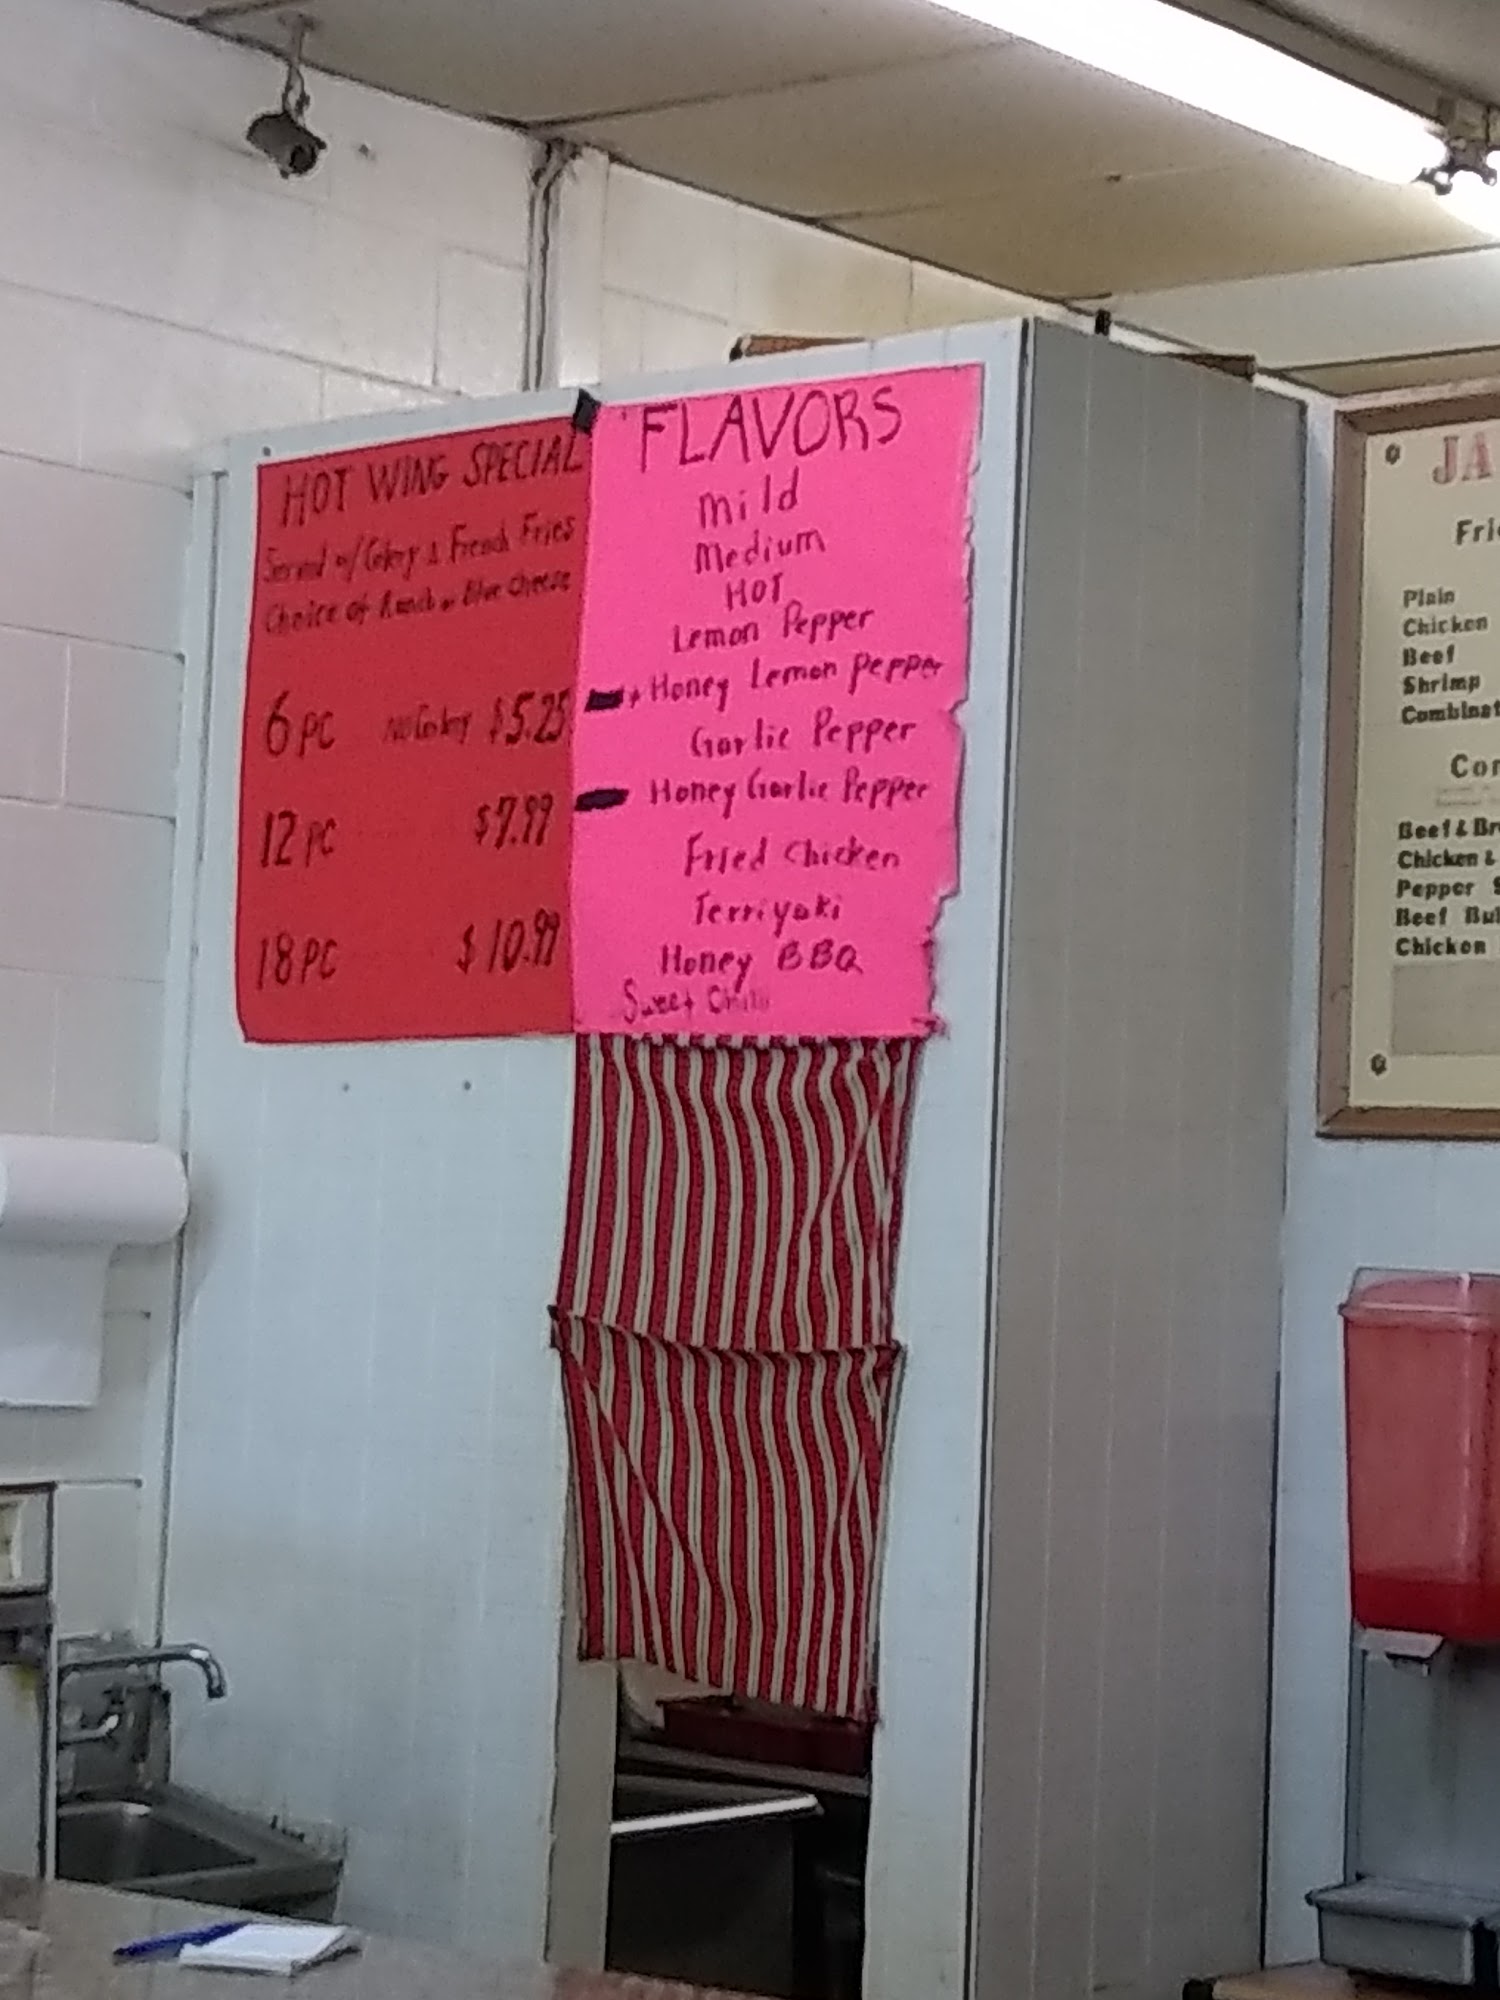 HOT WING SPECIAL
Served w/ Celery & French Fries
Choice of Ranch or Blue Cheese
6 PC No Celery $5.25
12 PC $7.99
18 PC $10.99
FLAVORS
Mild
Medium
HOT
Lemon Pepper
Honey Lemon Pepper
Garlic Pepper
Honey Garlic Pepper
Fried Chicken
Terriyaki
Honey BBQ
Sweet Chili
JA
Fri
Plain
Chicken
Beef
Shrimp
Combinat
Cor
Beef & Br
Chicken &
Pepper S
Beef Bul
Chicken